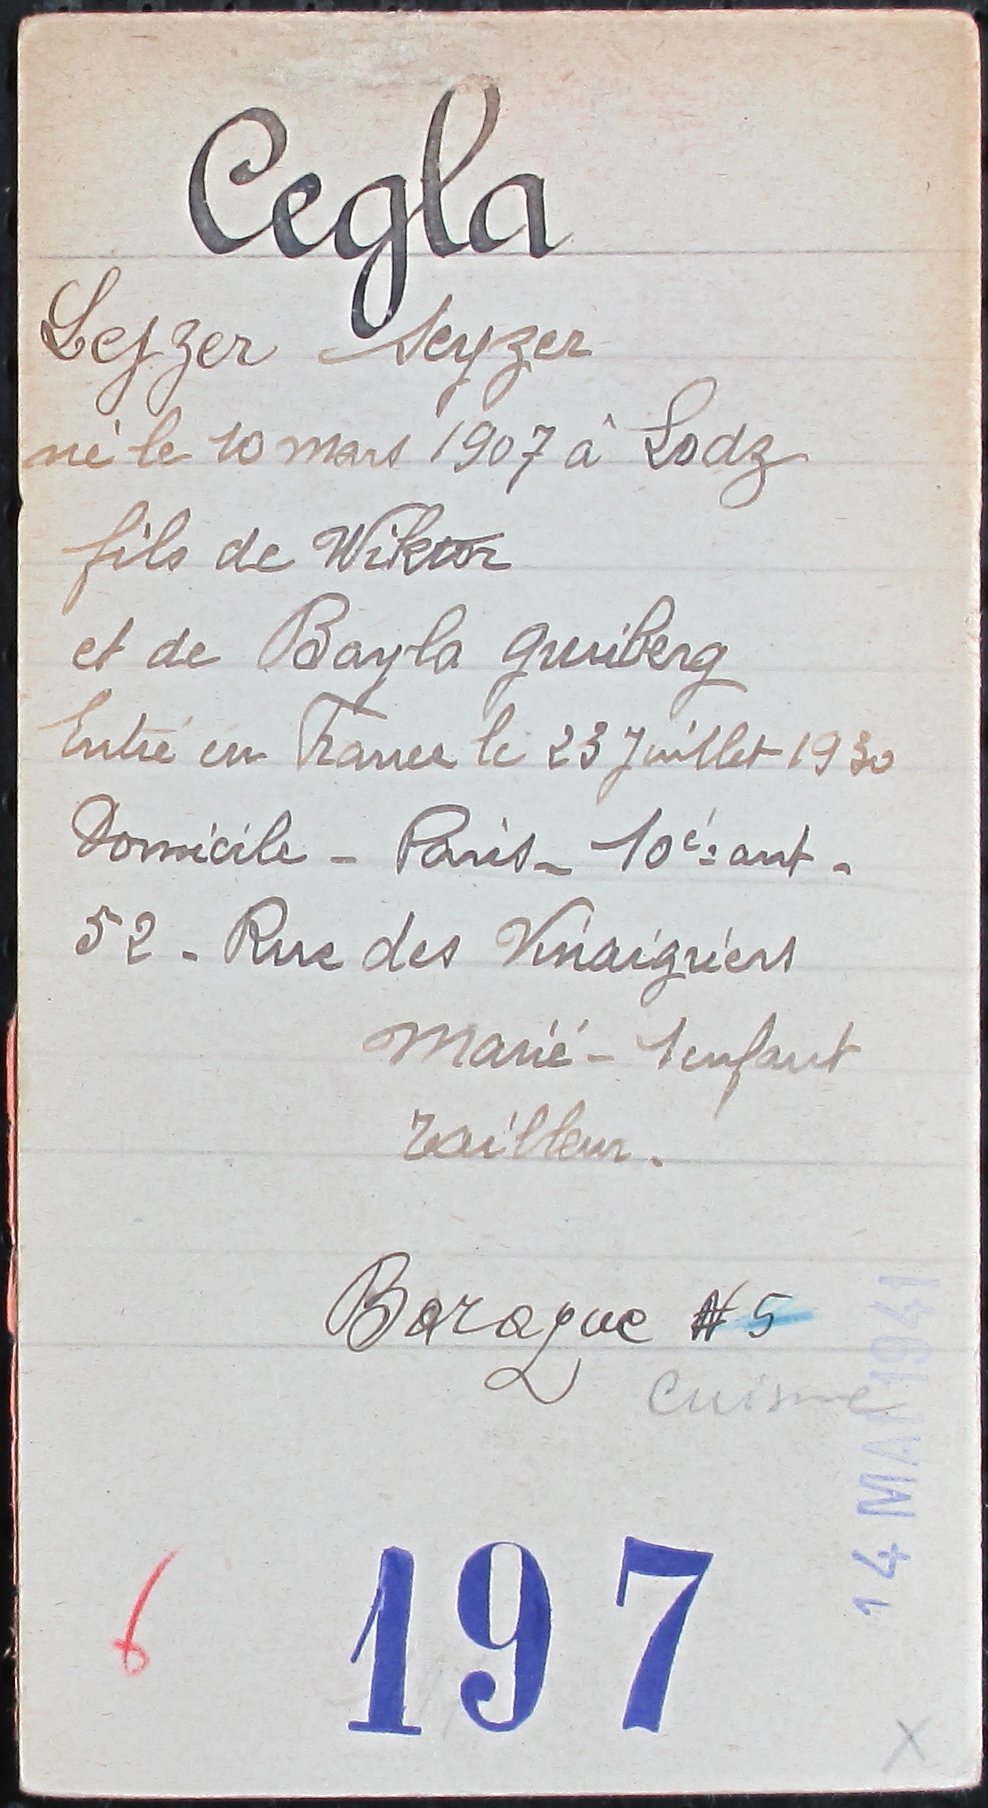 Cegla
Lejzer Leyzer
né le 10 mars 1907 à Lodz
fils de Wiktor
et de Bayla Grinberg
Entré en France le 23 Juillet 1930
Domicile - Paris - 10è: arrt -
52 - Rue des Vinaigriers
Marié - 1 enfant
Tailleur.
Baraque N 5
cuisine
14 MAI 1941
6
197
X